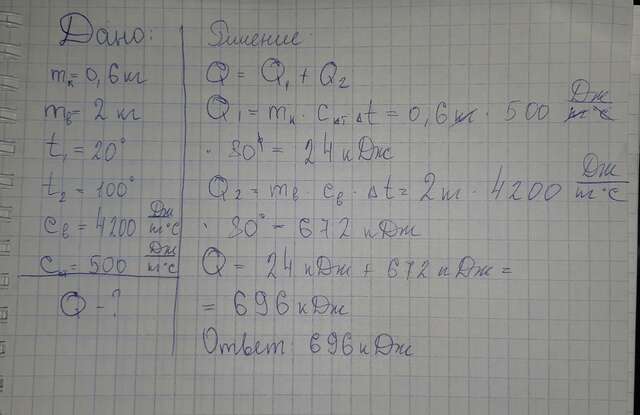 Дано:
mк = 0,6 кг
mв = 2 кг
t₁ = 20°
t₂ = 100°
cв = 4200 Дж/кг·°С
cк = 500 Дж/кг·°С
Q - ?
Решение:
Q = Q₁ + Q₂
Q₁ = mк · cк · Δt = 0,6 кг · 500 Дж/кг·°С
· 80° = 24 кДж
Q₂ = mв · cв · Δt = 2 кг · 4200 Дж/кг·°С
· 80° = 672 кДж
Q = 24 кДж + 672 кДж =
= 696 кДж
Ответ: 696 кДж